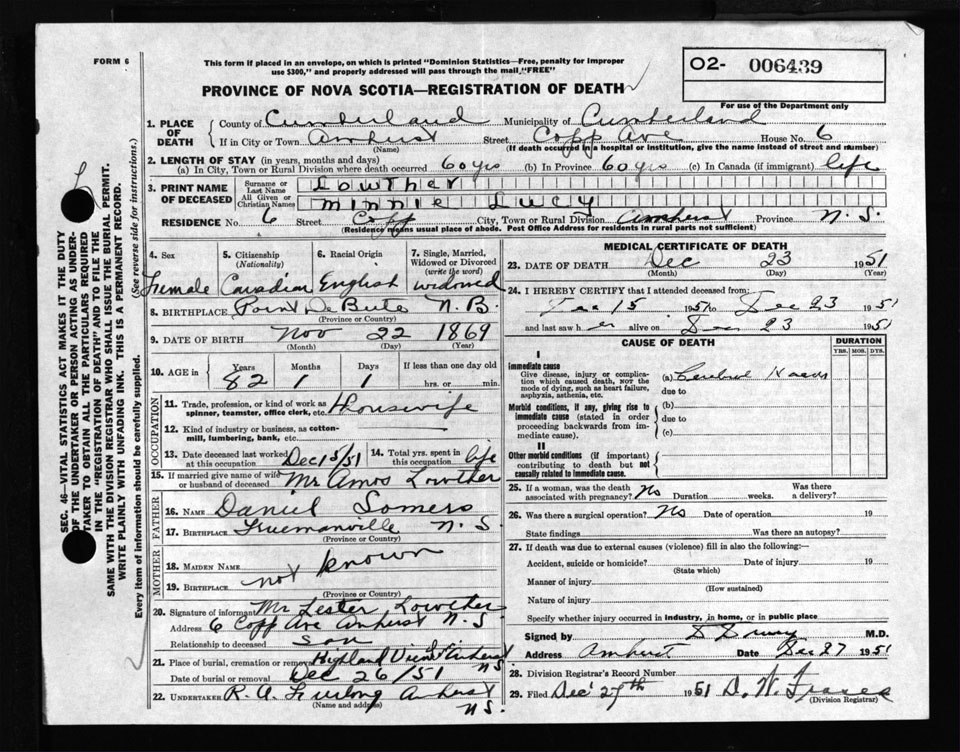 FORM 6
This form if placed in an envelope, on which is printed "Dominion Statistics—Free, penalty for improper
use $300," and properly addressed will pass through the mail "FREE"
O2- 006439
PROVINCE OF NOVA SCOTIA—REGISTRATION OF DEATH
For use of the Department only
SEC. 46—VITAL STATISTICS ACT MAKES IT THE DUTY
OF THE UNDERTAKER OR PERSON ACTING AS UNDER-
TAKER TO OBTAIN ALL THE PARTICULARS REQUIRED
IN THE "REGISTRATION OF DEATH" AND TO FILE THE
SAME WITH THE DIVISION REGISTRAR WHO SHALL ISSUE THE BURIAL PERMIT.
WRITE PLAINLY WITH UNFADING INK. THIS IS A PERMANENT RECORD.
Every item of information should be carefully supplied. (See reverse side for instructions.)
1. PLACE OF DEATH
County of Cumberland Municipality of Cumberland
If in City or Town Amherst Street Copp Ave House No. 6
(Name) (If death occurred in a hospital or institution, give the name instead of street and number)
2. LENGTH OF STAY (in years, months and days)
(a) In City, Town or Rural Division where death occurred 60 yrs (b) In Province 60 yrs (c) In Canada (if immigrant) life
3. PRINT NAME OF DECEASED
Surname or Last Name Lowther
All Given or Christian Names Minnie Lucy
RESIDENCE No. 6 Street Copp City, Town or Rural Division Amherst Province N. S.
(Residence means usual place of abode. Post Office Address for residents in rural parts not sufficient)
4. Sex Female
5. Citizenship (Nationality) Canadian
6. Racial Origin English
7. Single, Married, Widowed or Divorced (write the word) widowed
8. BIRTHPLACE Point De Bute N. B.
(Province or Country)
9. DATE OF BIRTH Nov 22 1869
(Month) (Day) (Year)
10. AGE in Years 82 Months 1 Days 1 If less than one day old
hrs. or min.
OCCUPATION
11. Trade, profession, or kind of work as
spinner, teamster, office clerk, etc. Housewife
12. Kind of industry or business, as cotton-
mill, lumbering, bank, etc.
13. Date deceased last worked at this occupation Dec 15/51 14. Total yrs. spent in this occupation life
15. If married give name of wife
or husband of deceased Mr Amos Lowther
FATHER
16. NAME Daniel Somers
17. BIRTHPLACE Truemanville N. S.
(Province or Country)
MOTHER
18. MAIDEN NAME
19. BIRTHPLACE not known
(Province or Country)
20. Signature of informant Mr Lester Lowther
Address 6 Copp Ave Amherst N. S.
Relationship to deceased son
21. Place of burial, cremation or removal Highland View Amherst NS
Date of burial or removal Dec 26/51
22. UNDERTAKER R. A. Furlong Amherst
(Name and address) N S.
MEDICAL CERTIFICATE OF DEATH
23. DATE OF DEATH Dec 23 1951
(Month) (Day) (Year)
24. I HEREBY CERTIFY that I attended deceased from:
Dec 15 1951 to Dec 23 1951
and last saw her alive on Dec 23 1951
CAUSE OF DEATH DURATION
YRS. MOS. DYS.
I
Immediate cause
Give disease, injury or compli-
cation which caused death, NOT the
mode of dying, such as heart failure,
asphyxia, asthenia, etc.
(a)
due to
Morbid conditions, if any, giving rise to
immediate cause (stated in order
proceeding backwards from im-
mediate cause).
(b)
due to
(c)
II
Other morbid conditions (if important)
contributing to death but not
causally related to immediate cause.
25. If a woman, was the death
associated with pregnancy? No Duration weeks. Was there
a delivery?
26. Was there a surgical operation? No Date of operation 19
State findings Was there an autopsy?
27. If death was due to external causes (violence) fill in also the following:—
Accident, suicide or homicide? Date of injury 19
(State which)
Manner of injury
(How sustained)
Nature of injury
Specify whether injury occurred in industry, in home, or in public place
Signed by M.D.
Address Amherst Date Dec 27 1951
28. Division Registrar's Record Number
29. Filed Dec 27th 1951 D. W.
(Division Registrar)